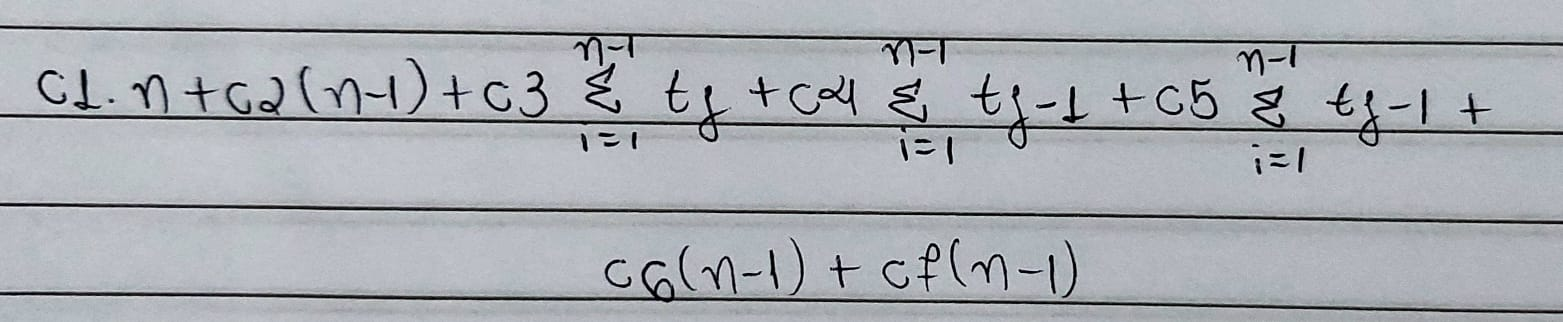 c1.n+c2(n-1)+c3 Σ_{i=1}^{n-1} tj +c4 Σ_{i=1}^{n-1} tj-1 +c5 Σ_{i=1}^{n-1} tj-1 +
c6(n-1) + c7(n-1)